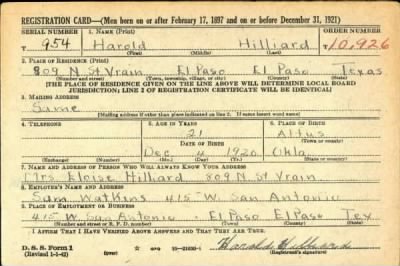 REGISTRATION CARD—(Men born on or after February 17, 1897 and on or before December 31, 1921)
SERIAL NUMBER 1. NAME (Print) ORDER NUMBER
T 954 Harold Hilliard T10,926
(First) (Middle) (Last)
2. PLACE OF RESIDENCE (Print)
809 N St Vrain El Paso El Paso Texas
(Number and street) (Town, township, village, or city) (County) (State)
[THE PLACE OF RESIDENCE GIVEN ON THE LINE ABOVE WILL DETERMINE LOCAL BOARD
JURISDICTION; LINE 2 OF REGISTRATION CERTIFICATE WILL BE IDENTICAL]
3. MAILING ADDRESS
Same
[Mailing address if other than place indicated on line 2. If same insert word same]
4. TELEPHONE 5. AGE IN YEARS 6. PLACE OF BIRTH
21 Altus
DATE OF BIRTH (Town or county)
Dec 4 1920 Okla.
(Exchange) (Number) (Mo.) (Day) (Yr.) (State or country)
7. NAME AND ADDRESS OF PERSON WHO WILL ALWAYS KNOW YOUR ADDRESS
Mrs Eloise Hilliard 809 N. St Vrain
8. EMPLOYER'S NAME AND ADDRESS
Sam Watkins 415 W. San Antonio
9. PLACE OF EMPLOYMENT OR BUSINESS
415 W. San Antonio - El Paso El Paso Tex
(Number and street or R. F. D. number) (Town) (County) (State)
I AFFIRM THAT I HAVE VERIFIED ABOVE ANSWERS AND THAT THEY ARE TRUE.
D. S. S. Form 1
(Revised 1-1-42) (over) 16—21630-1 Harold Hilliard
(Registrant's signature)